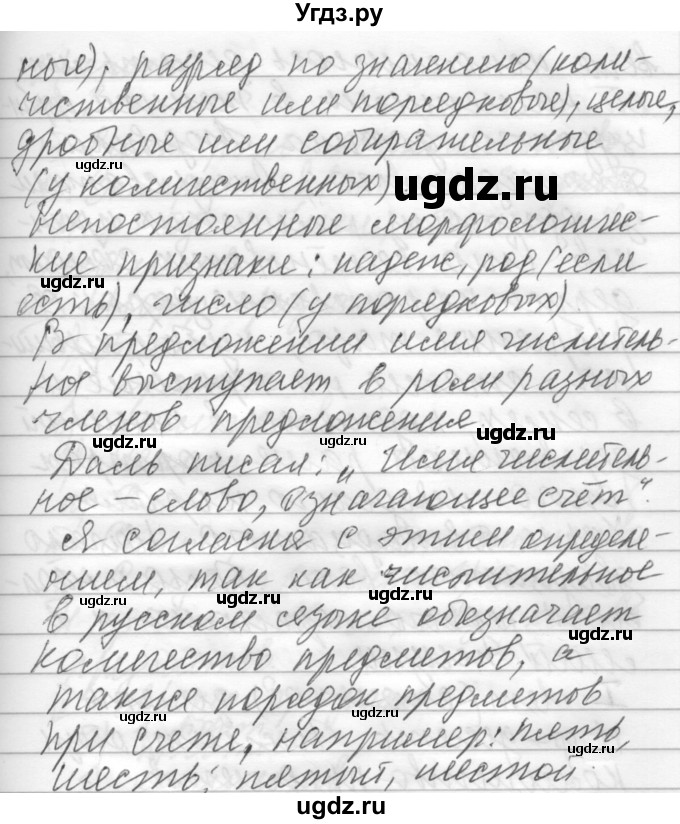 Угдз.ру
ные); разряд по значению (коли-
чественные или порядковые), целые,
дробные или собирательные
ugdz.ru ugdz.ru
(у количественных) ugdz.ru
Непостоянные морфологичес-
кие признаки: падеж, род (если
ugdz.ru ugdz.ru
есть), число (у порядковых)
В предложении имя числитель-
ное выступает в роли разных
членов предложения
ugdz.ru ugdz.ru ugdz.ru
Даль писал: „Имя числитель-
ное – слово, означающее счёт“.
Я согласна с этим определе-
нием, так как числительное
ugdz.ru ugdz.ru ugdz.ru
в русском языке обозначает
количество предметов, а
также порядок предметов
ugdz.ru ugdz.ru
при счете, например: пять,
ugdz.ru
шесть; пятый, шестой.
ugdz.ru